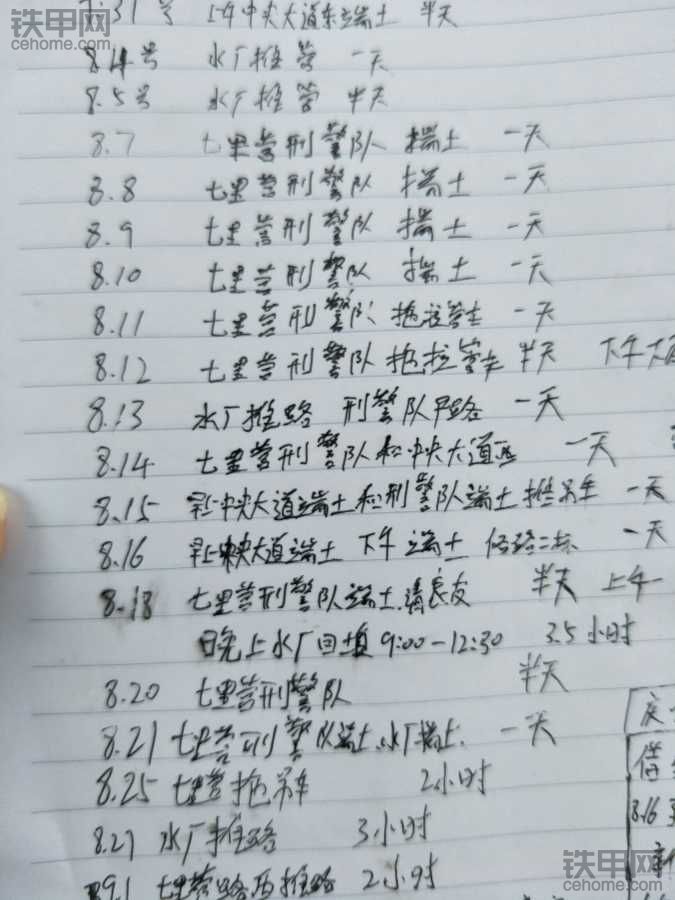 铁甲网
cehome.com
31号 上午中央大道东端土 半天
8.4号 水厂推管 一天
8.5号 水厂推管 半天
8.7 七里营刑警队 揣土 一天
8.8 七里营刑警队 揣土 一天
8.9 七里营刑警队 揣土 一天
8.10 七里营刑警队 揣土 一天
8.11 七里营刑警队 拖 一天
8.12 七里营刑警队 拖 半天 下午
8.13 水厂推路 刑警队平路 一天
8.14 七里营刑警队和中央大道 一天
8.15 早上中央大道端土和刑警队端土 推吊车 一天
8.16 早上中央大道端土 下午端土 修路二标 一天
8.18 七里营刑警队端土.清良友 半天 上午
日晚上水厂回填9:00-12:30 3.5小时
8.20 七里营刑警队 半天
8.21 七里营刑警队端土.水厂揣土. 一天
8.25 七里营拖吊车 2小时
8.27 水厂推路 3小时
9.1 七里营路西推路 2小时
借
8.16
铁甲网
cehome.com